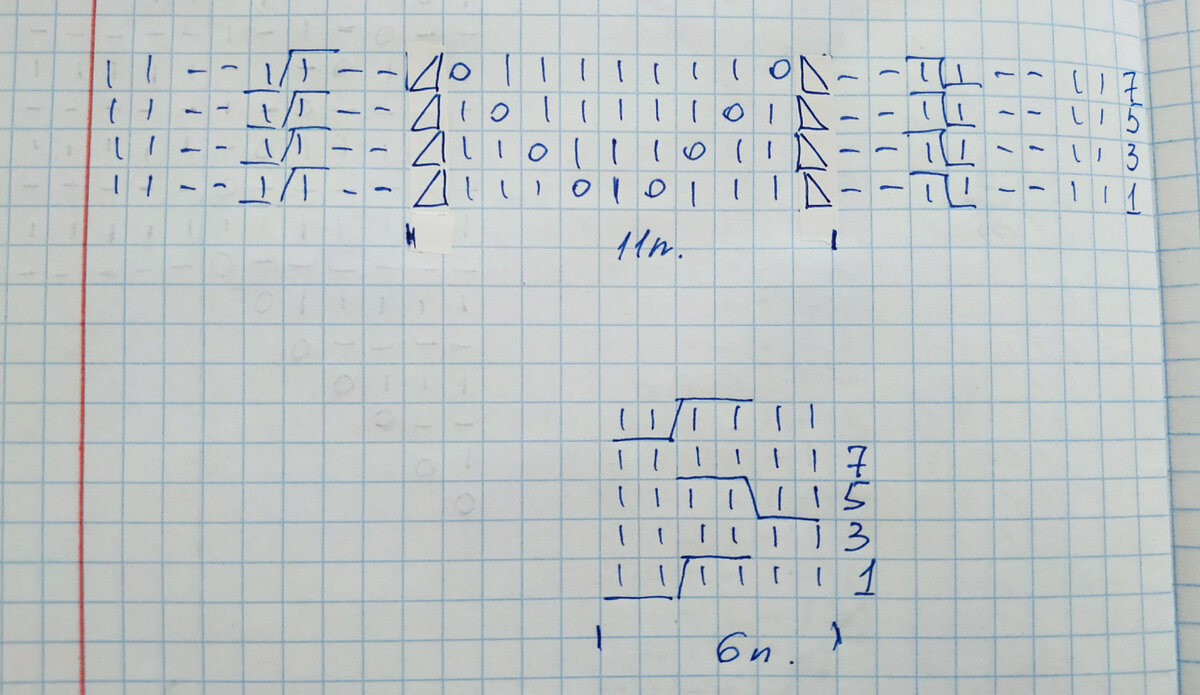 I I - - I/I - - ◿ O I I I I I I I O ◺ - - I\I - - I I 7
I I - - I/I - - ◿ I O I I I I I O I ◺ - - I\I - - I I 5
I I - - I/I - - ◿ I I O I I I O I I ◺ - - I\I - - I I 3
I I - - I/I - - ◿ I I I O I O I I I ◺ - - I\I - - I I 1
11п.
I I / I I I I
I I I I I I 7
I I I I \ I I 5
I I I I I I 3
I I / I I I I 1
6п.